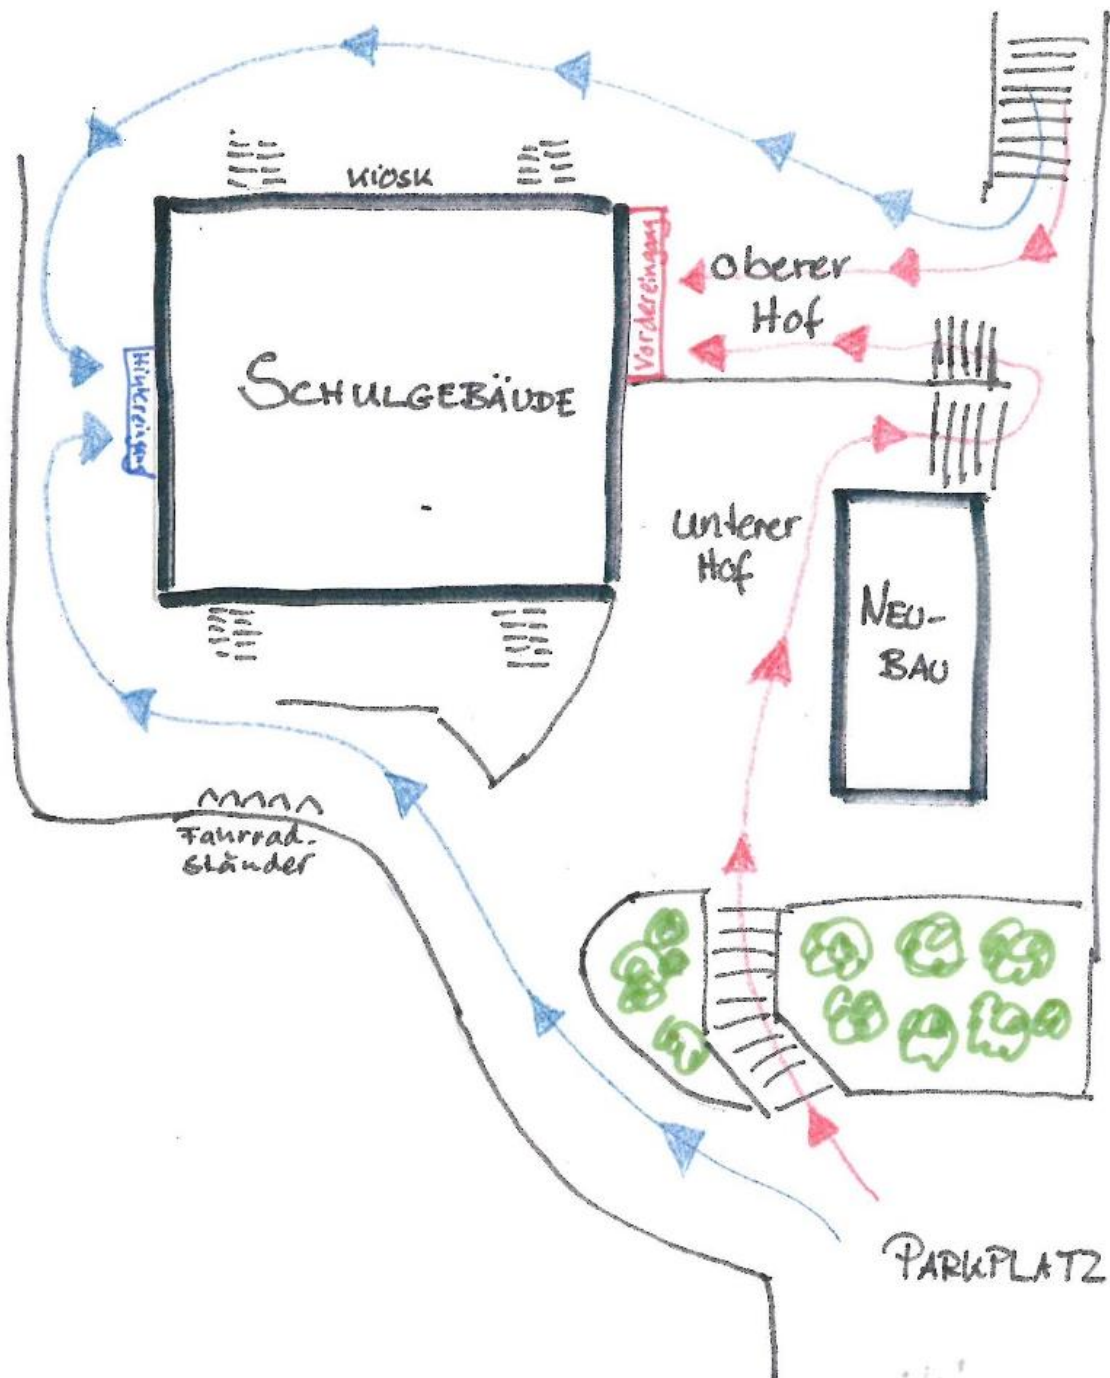 Kiosk
Vordereingang
oberer
Hof
Hintereingang
SCHULGEBÄUDE
unterer
Hof
NEU-
BAU
Fahrrad-
ständer
PARKPLATZ